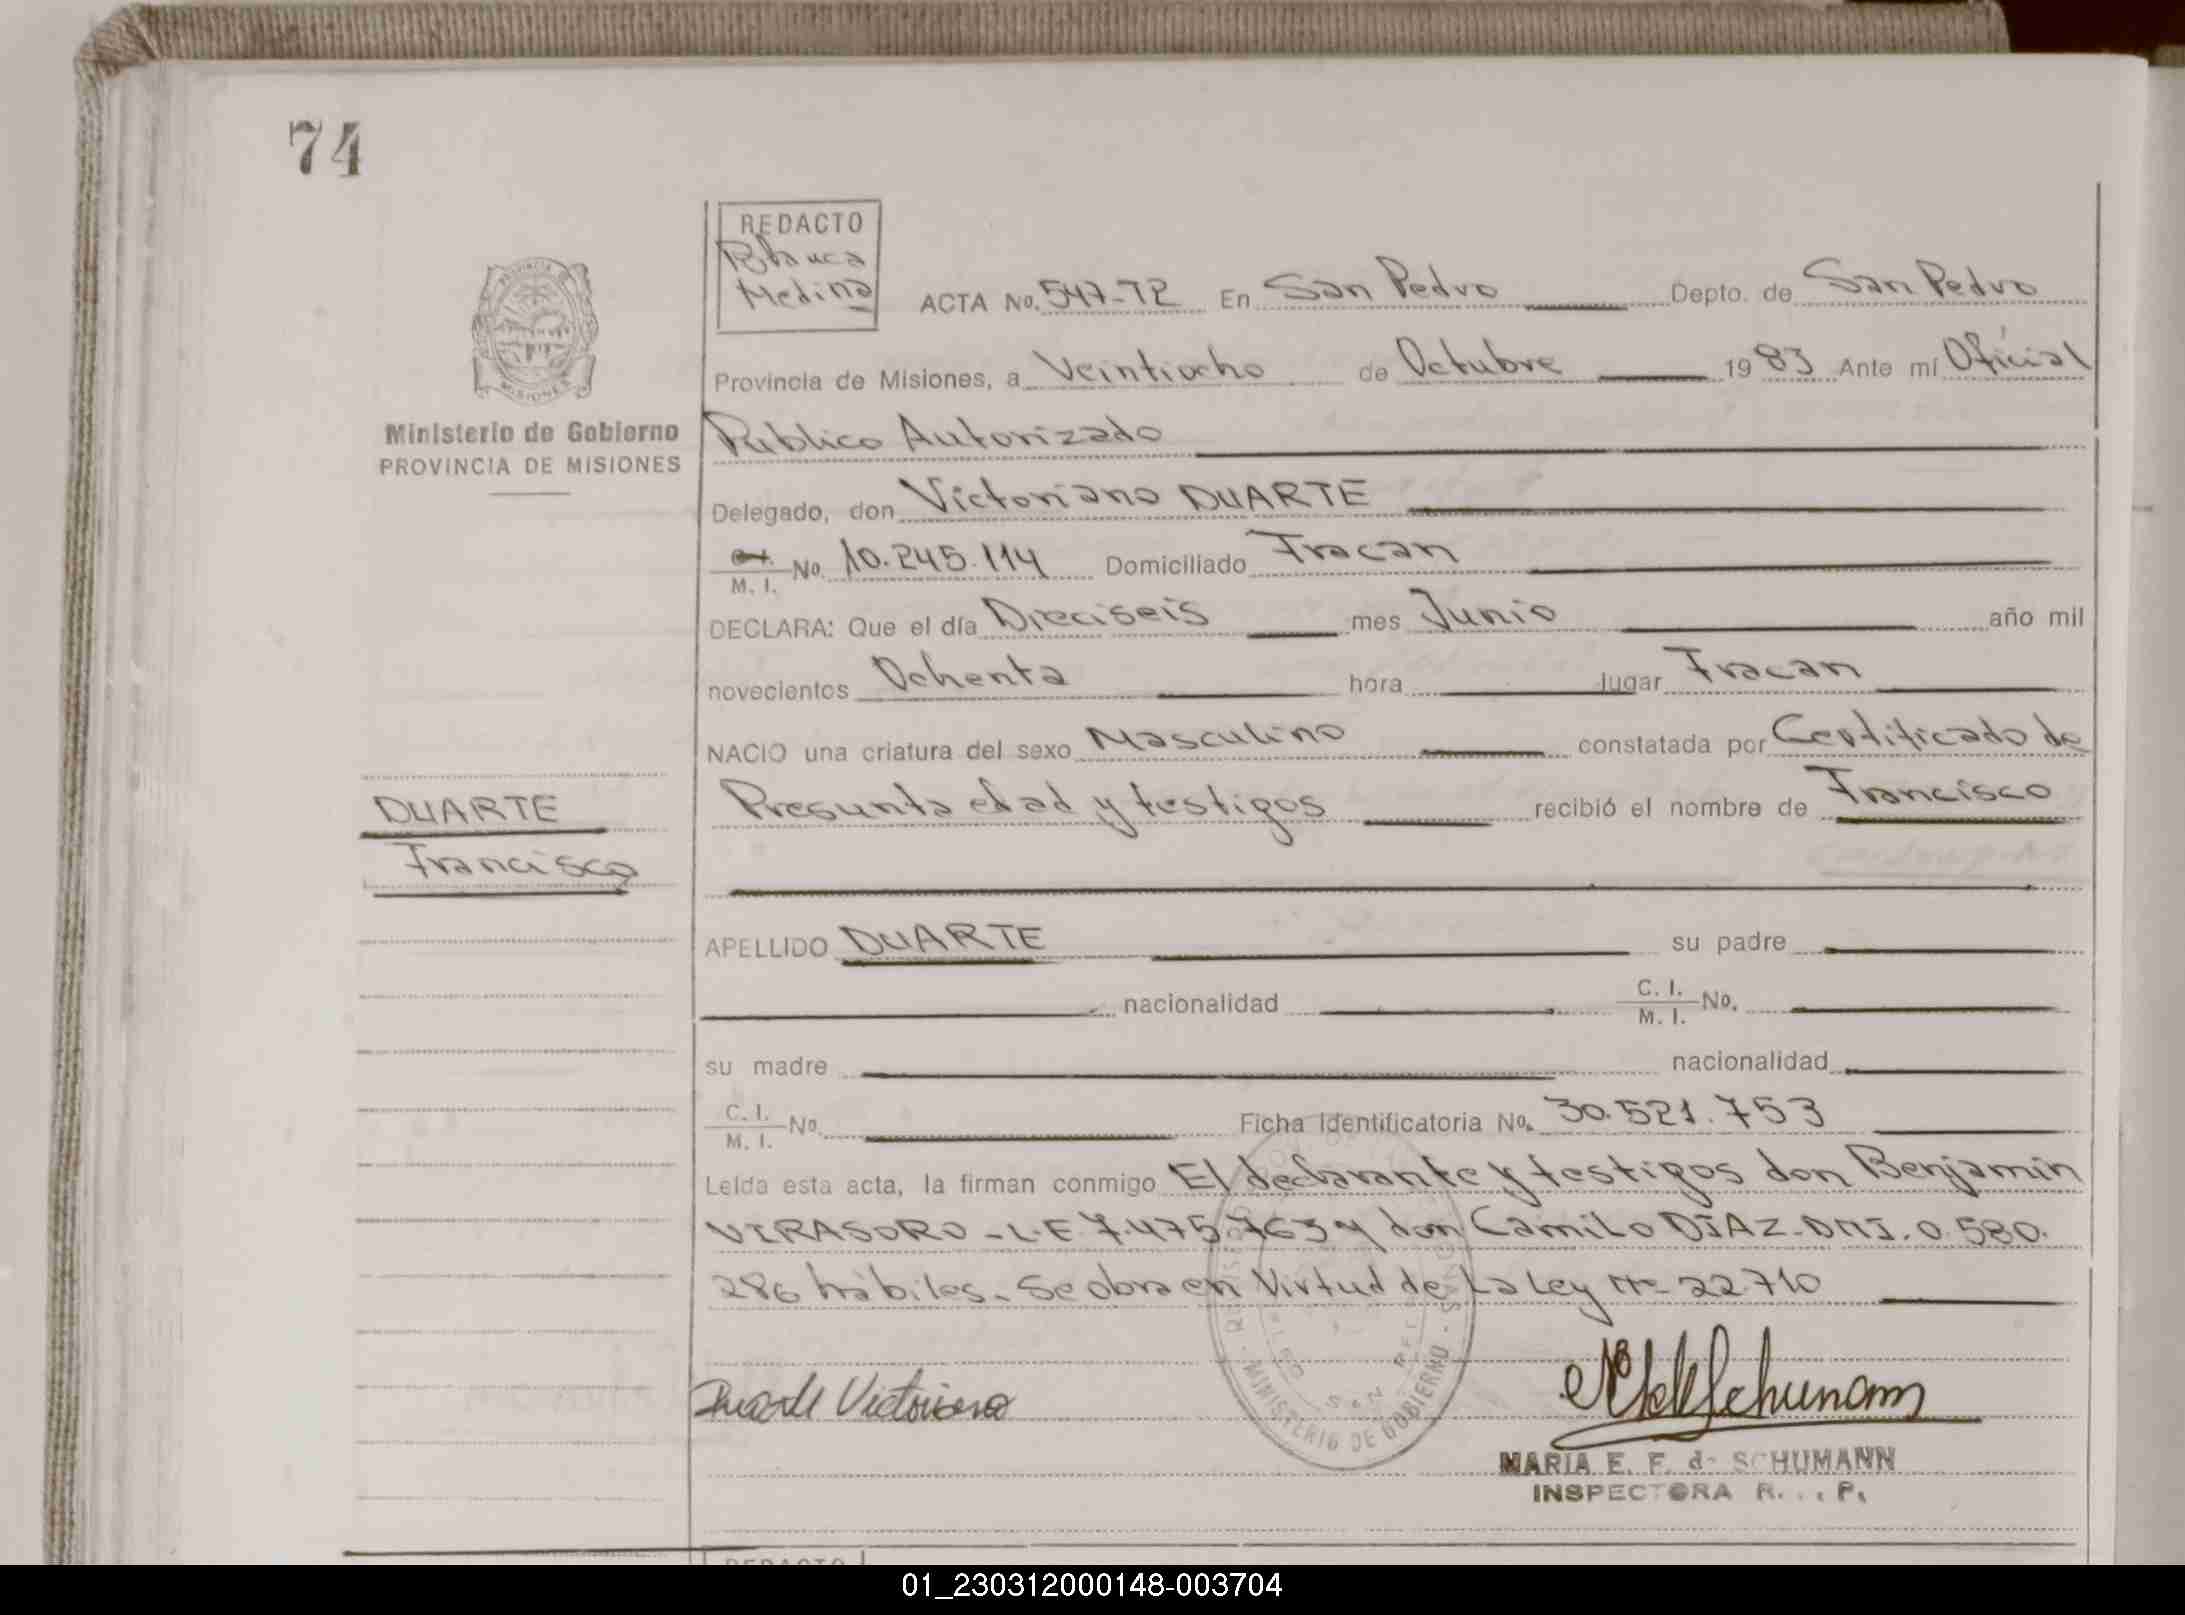 74
REDACTO
Blanca
Medina
ACTA No. 547-T2 En San Pedro Depto. de San Pedro
Provincia de Misiones, a Veintiocho de Octubre 1983 Ante mí Oficial
Publico Autorizado
PROVINCIA DE
MISIONES
Ministerio de Gobierno
PROVINCIA DE MISIONES
Delegado, don Victoriano DUARTE
M. I. No. 10.245.114 Domiciliado Fracan
DECLARA: Que el día Dieciseis mes Junio año mil
novecientos Ochenta hora lugar Fracan
NACIO una criatura del sexo Masculino constatada por Certificado de
Presunta edad y testigos recibió el nombre de Francisco
DUARTE
Francisco
APELLIDO DUARTE su padre
nacionalidad C. I. M. I. No.
su madre nacionalidad
C. I. M. I. No. Ficha Identificatoria No. 30.521.753
Leída esta acta, la firman conmigo El declarante y testigos don Benjamín
VIRASORO - L.E 7.475.763 y don Camilo DIAZ - DNI. 0.580.
286 hábiles. Se obra en Virtud de La Ley Nº 22.710
Duarte Victoriano
MINISTERIO DE GOBIERNO
Schumann
MARIA E. F. de SCHUMANN
INSPECTORA R. . . P.
REDACTO
01_230312000148-003704